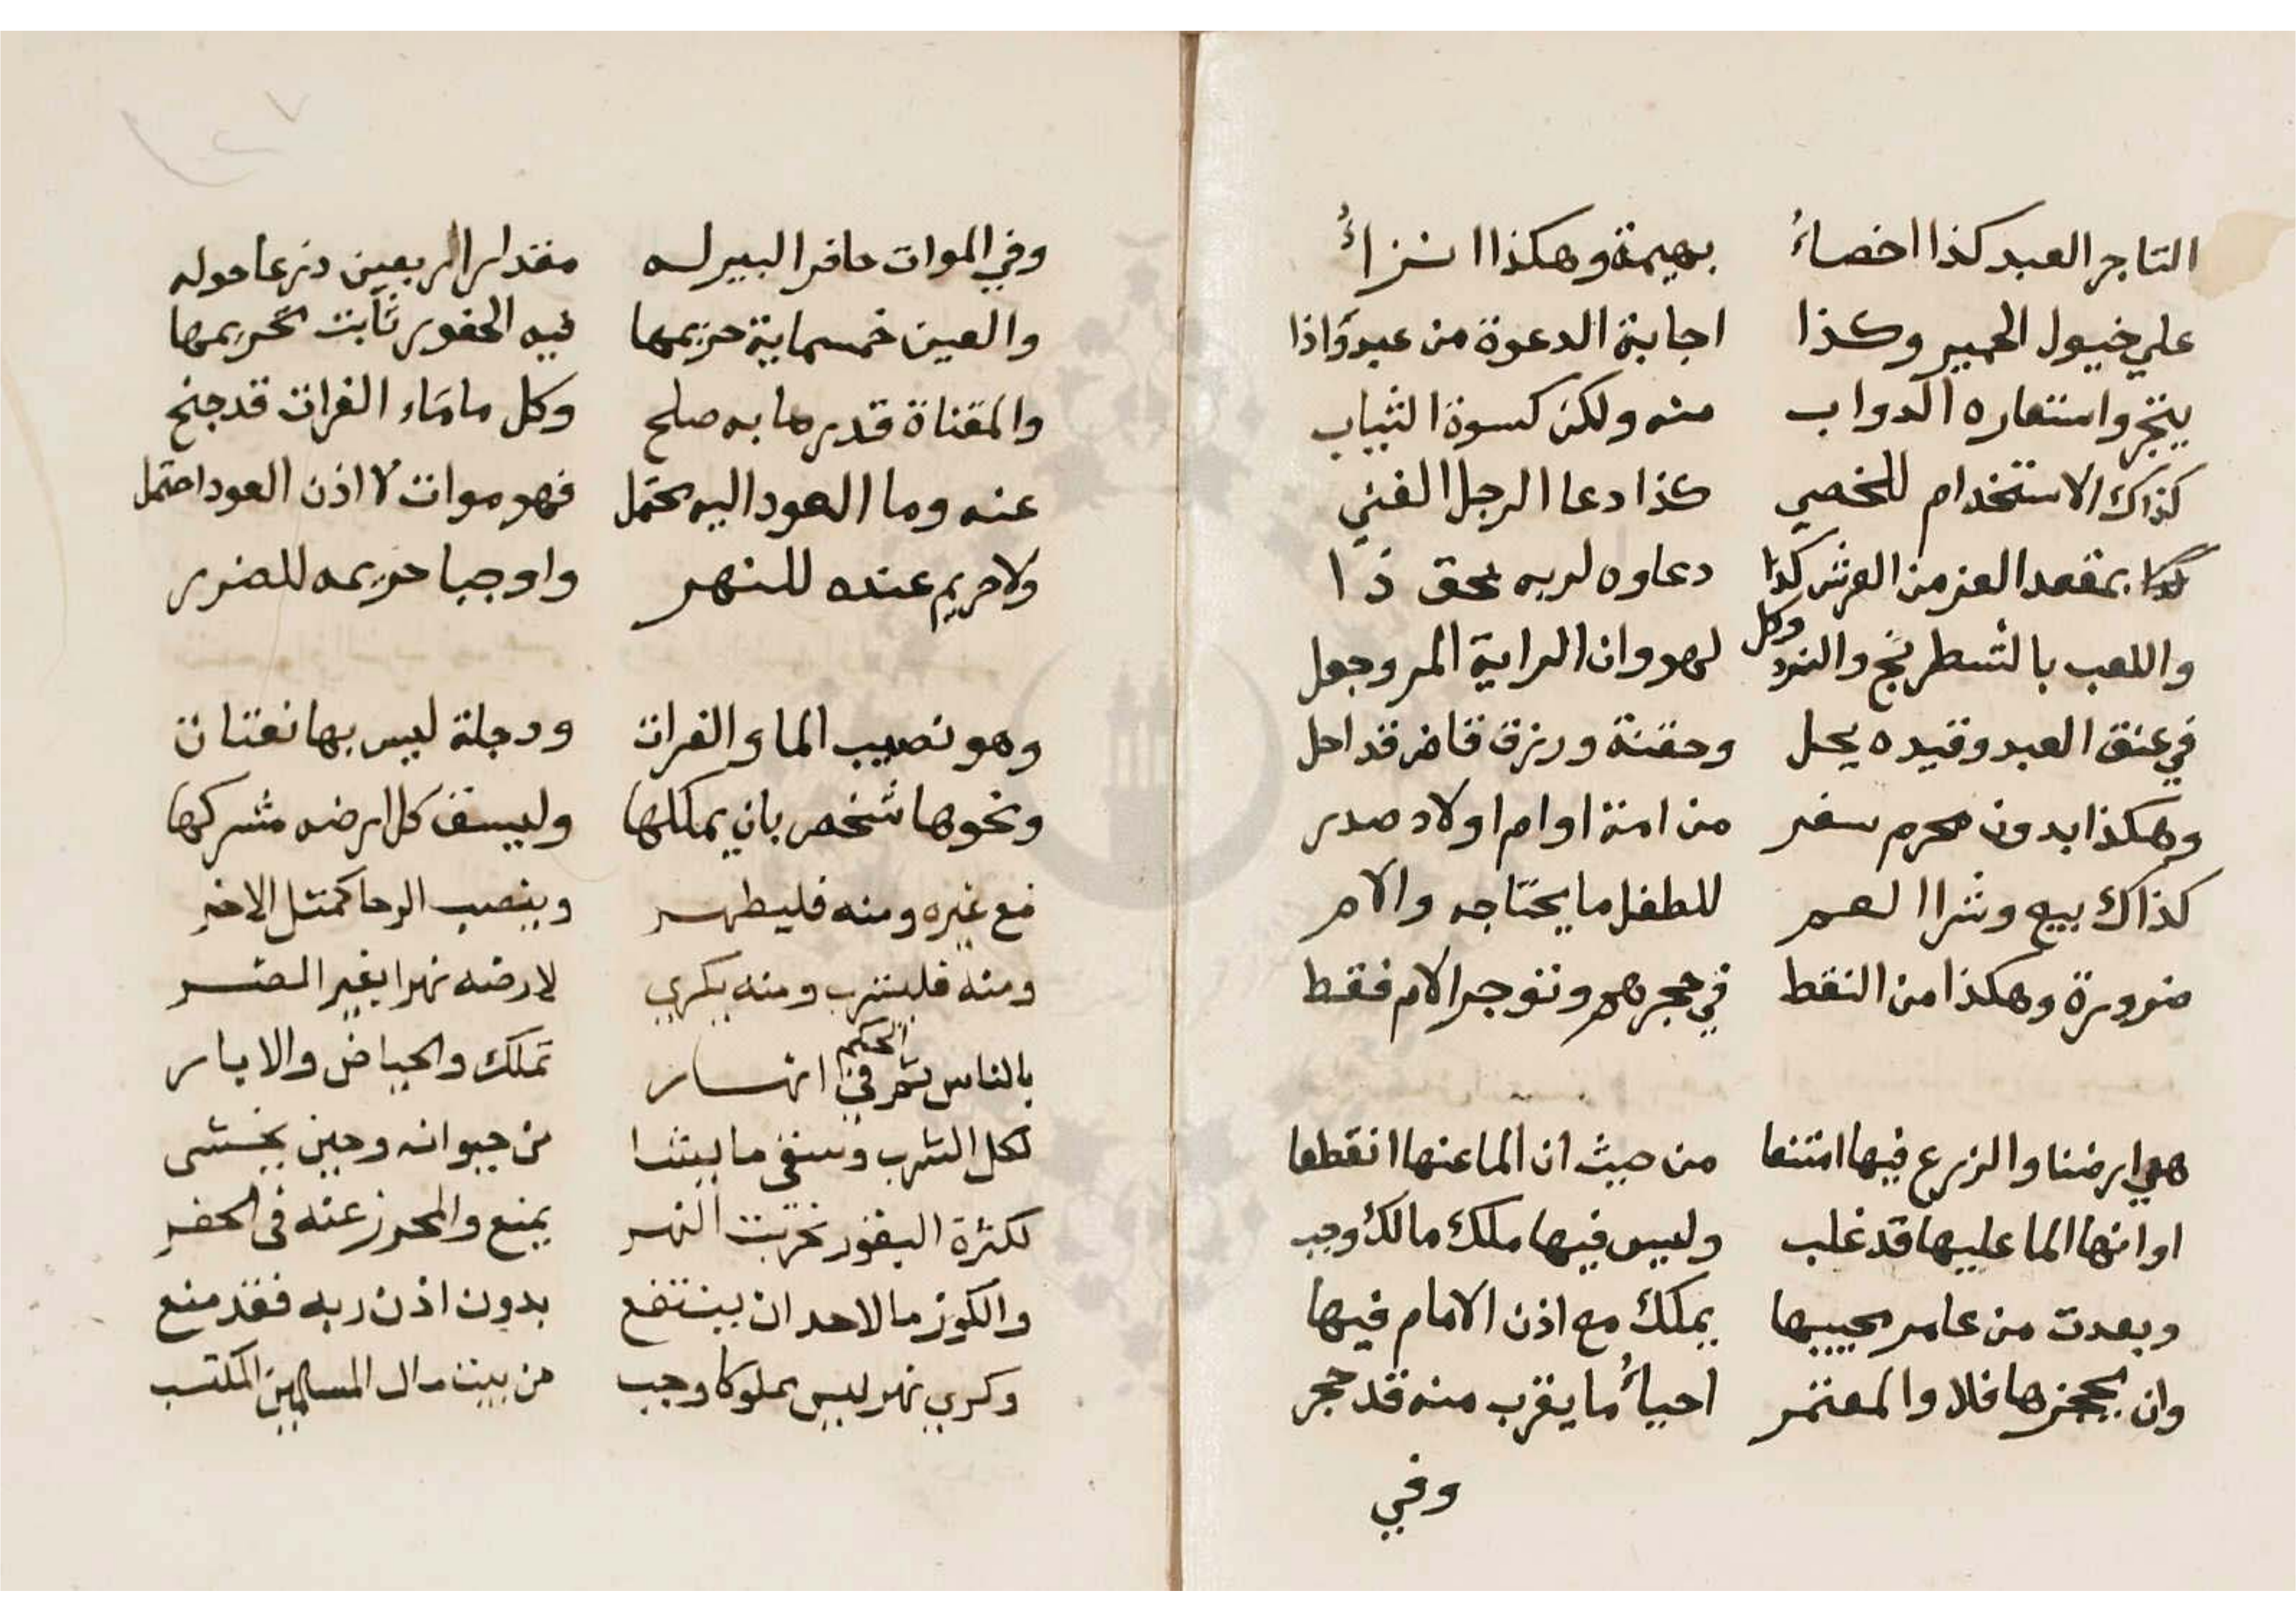 التاجر العبد كذا اخصاءُ بهيمة وهكذا انزاءُ
علي خيول الحمير وكذا اجابة الدعوة من عبد واذا
يتجر واستعاره الدواب منه ولكن كسوة الثياب
كذاك الاستخدام للخصي كذا دعا الرجل الغني
بمقعد العز من العرش كذا دعاوه لربه بحق ذا
واللعب بالشطرنج والنرد وكل لهو وان الراية المر وجعل
في عنق العبد وقيده يحل وحقنة ورزق قاض قد احل
وهكذا بدون محرم سفر من امة او ام اولاد صدر
كذاك بيع وشرا العم للطفل ما يحتاجه والام
ضرورة وهكذا من التقط في حجرهم وتوجر الام فقط
هي ارضنا والزرع فيها امتنعا من حيث ان الما عنها انقطعا
او انها الما عليها قد غلب وليس فيها ملك مالك وجب
وبعدت من عامر يحييها يملك مع اذن الامام فيها
وان يحجرها فلا والمعتمر احياءُ ما يقرب منه قد حجر
وفي
وفي الموات حافر البير له مقدار اربعين ذرعا حوله
والعين خمسماية حريمها فيه الحفور ثابت تحريمها
والقناة قدر ما به صلح وكل ما ماء الفرات قد جنح
عنه وما العود اليه يحتمل فهو موات لا اذن العود احتمل
ولا حريم عنده للنهر واوجبا حريمه للضرر
وهو نصيب الماء والفرات ودجلة ليس بها نفتات
ونحوها شخص بان يملكها وليسق كل ارضه مشركها
مع غيره ومنه فليطهر وينصب الرحا كمثل الاخر
ومنه فليشرب ومنه يكري لارضه نهرا بغير الضر
بالناس ثم الحكم في انهار تملك والحياض والابار
لكل الشرب وسقي ما يشا من حيوانه وحين يخشى
لكثرة البقور تخريب النهر يمنع والمحرز عنه في الحفر
والكوز ما لاحد ان ينتفع بدون اذن ربه فقد منع
وكري نهر ليس مملوكا وجب من بيت مال المسلمين المكتسب